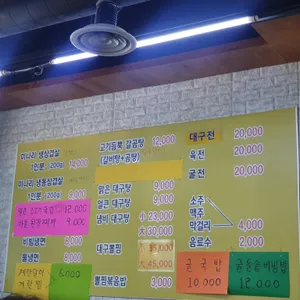 미나리 생삼겹살
1인분 (200g) 14,000
미나리 냉동삼겹살
1인분 (200g)
12,000
9,000
비빔냉면 8,000
물냉면
6,000
고기듬뿍 갈곰탕 12,000
(갈비탕+곰탕)
맑은 대구탕 9,000
얼큰 대구탕 9,000
냄비 대구탕 소 23,000
大 30,000
대구뽈찜 小 35,000
大 45,000
뽈찜볶음밥 3,000
대구전 20,000
육전 20,000
굴전 20,000
소주
맥주
막걸리 4,000
음료수 2,000
굴국밥
10,000
굴돌솥비빔밥
12,000